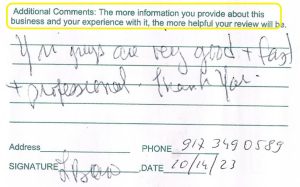 Additional Comments: The more information you provide about this
business and your experience with it, the more helpful your review will be.
guys are very good + fast
+ professional. Thank You.
Address
PHONE 917 349 0589
SIGNATURE DATE 10/14/23